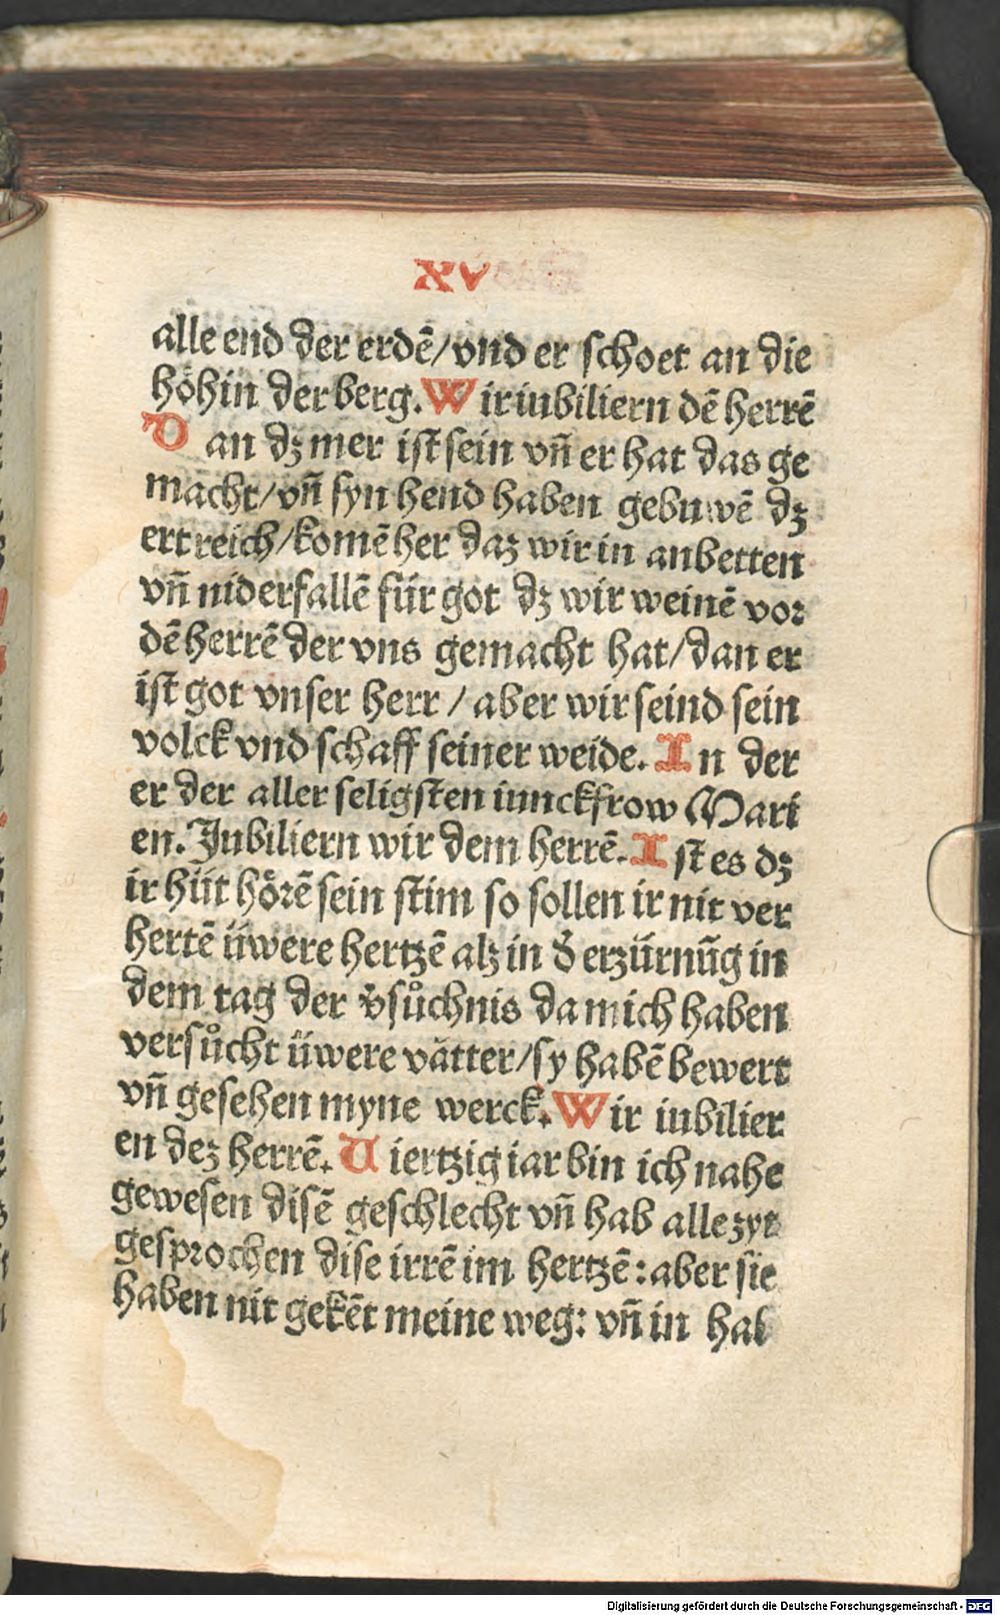 XV
alle end der erdē/vnd er schoet an die
höhin der berg. Wir iubiliern dē herrē
Dan dz mer ist sein vñ er hat das ge
macht/vñ syn hend haben gebuwē dz
ertreich/komē her daz wir in anbetten
vñ niderfallē für got dz wir weinē vor
dē herrē der vns gemacht hat/dan er
ist got vnser herr / aber wir seind sein
volck vnd schaff seiner weide. In der
er der aller seligsten iunckfrow Mari
en. Jubiliern wir dem herrē. Ist es dz
ir hüt hörē sein stim so sollen ir nit ver
hertē üwere hertzē alz in d̾ erzürnūg in
dem tag der v̾sůchnis da mich haben
versůcht üwere vätter/sy habē bewert
vñ gesehen myne werck. Wir iubilier
en dez herrē. Viertzig iar bin ich nahe
gewesen disē geschlecht vñ hab alle zyt
gesprochen dise irrē im hertzē: aber sie
haben nit gekēt meine weg: vñ in hab
Digitalisierung gefördert durch die Deutsche Forschungsgemeinschaft - DFG